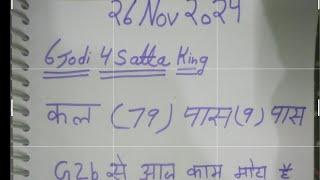 26 Nov 2024
6 Jodi 4 Satta King
कल (79) पास (9) पास
G2b से आज काम मोय है